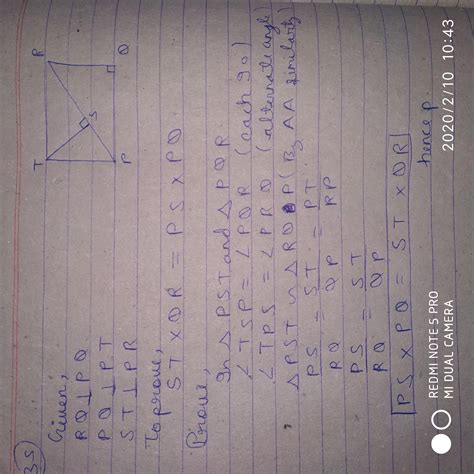 35
Given,
RQ ⊥ PQ
PQ ⊥ PT
ST ⊥ PR
To prove,
ST × QR = PS × PQ
Proove,
In △ PST and △ PQR
∠ TSP = ∠ PQR (each 90)
∠ TPS = ∠ PRQ (alternate angle)
△ PST ~ △ RQP (By AA similarity)
PS/RQ = ST/QP = PT/RP
PS/RQ = ST/QP
PS × PQ = ST × QR
hence p.
T
R
S
P
Q
REDMI NOTE 5 PRO
MI DUAL CAMERA
2020/2/10 10:43